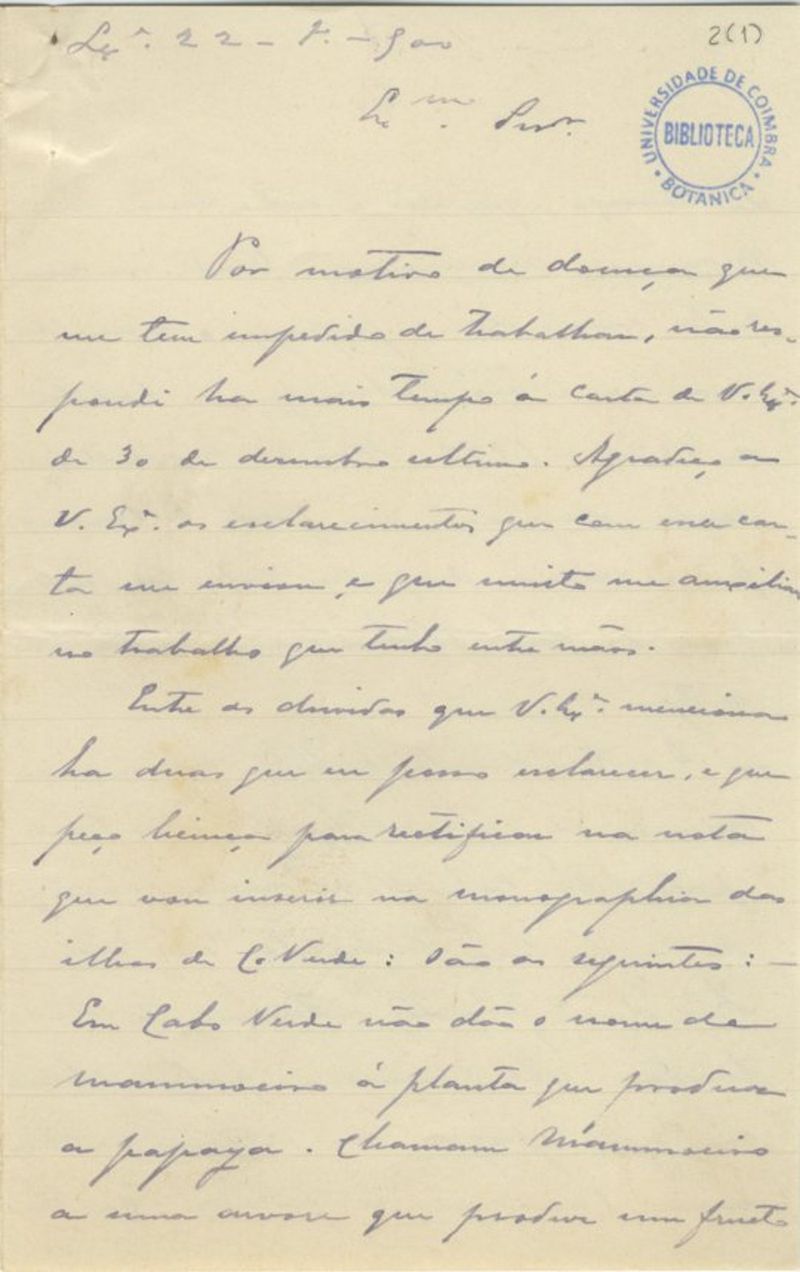 2(1)
Lxª. 22 - 1. - 900
UNIVERSIDADE DE COIMBRA
BIBLIOTECA
BOTANICA
Exmo. Snr.
Por motivo de doença que
me tem impedido de trabalhar, não res-
pondi ha mais tempo á carta de V. Exª.
de 30 de dezembro ultimo. Agradeço a
V. Exª. os esclarecimentos que com essa car-
ta me enviou, e que muito me auxiliam
no trabalho que tenho entre mãos.
Entre as duvidas que V. Exª. menciona
ha duas que eu posso esclarecer, e que
peço licença para rectificar na nota
que vou inserir na monographia das
ilhas de C. Verde: São as seguintes: —
Em Cabo Verde não dão o nome de
mammoeiro á planta que produz
a papaya. Chamam Mammoeiro
a uma arvore que produz um fructo